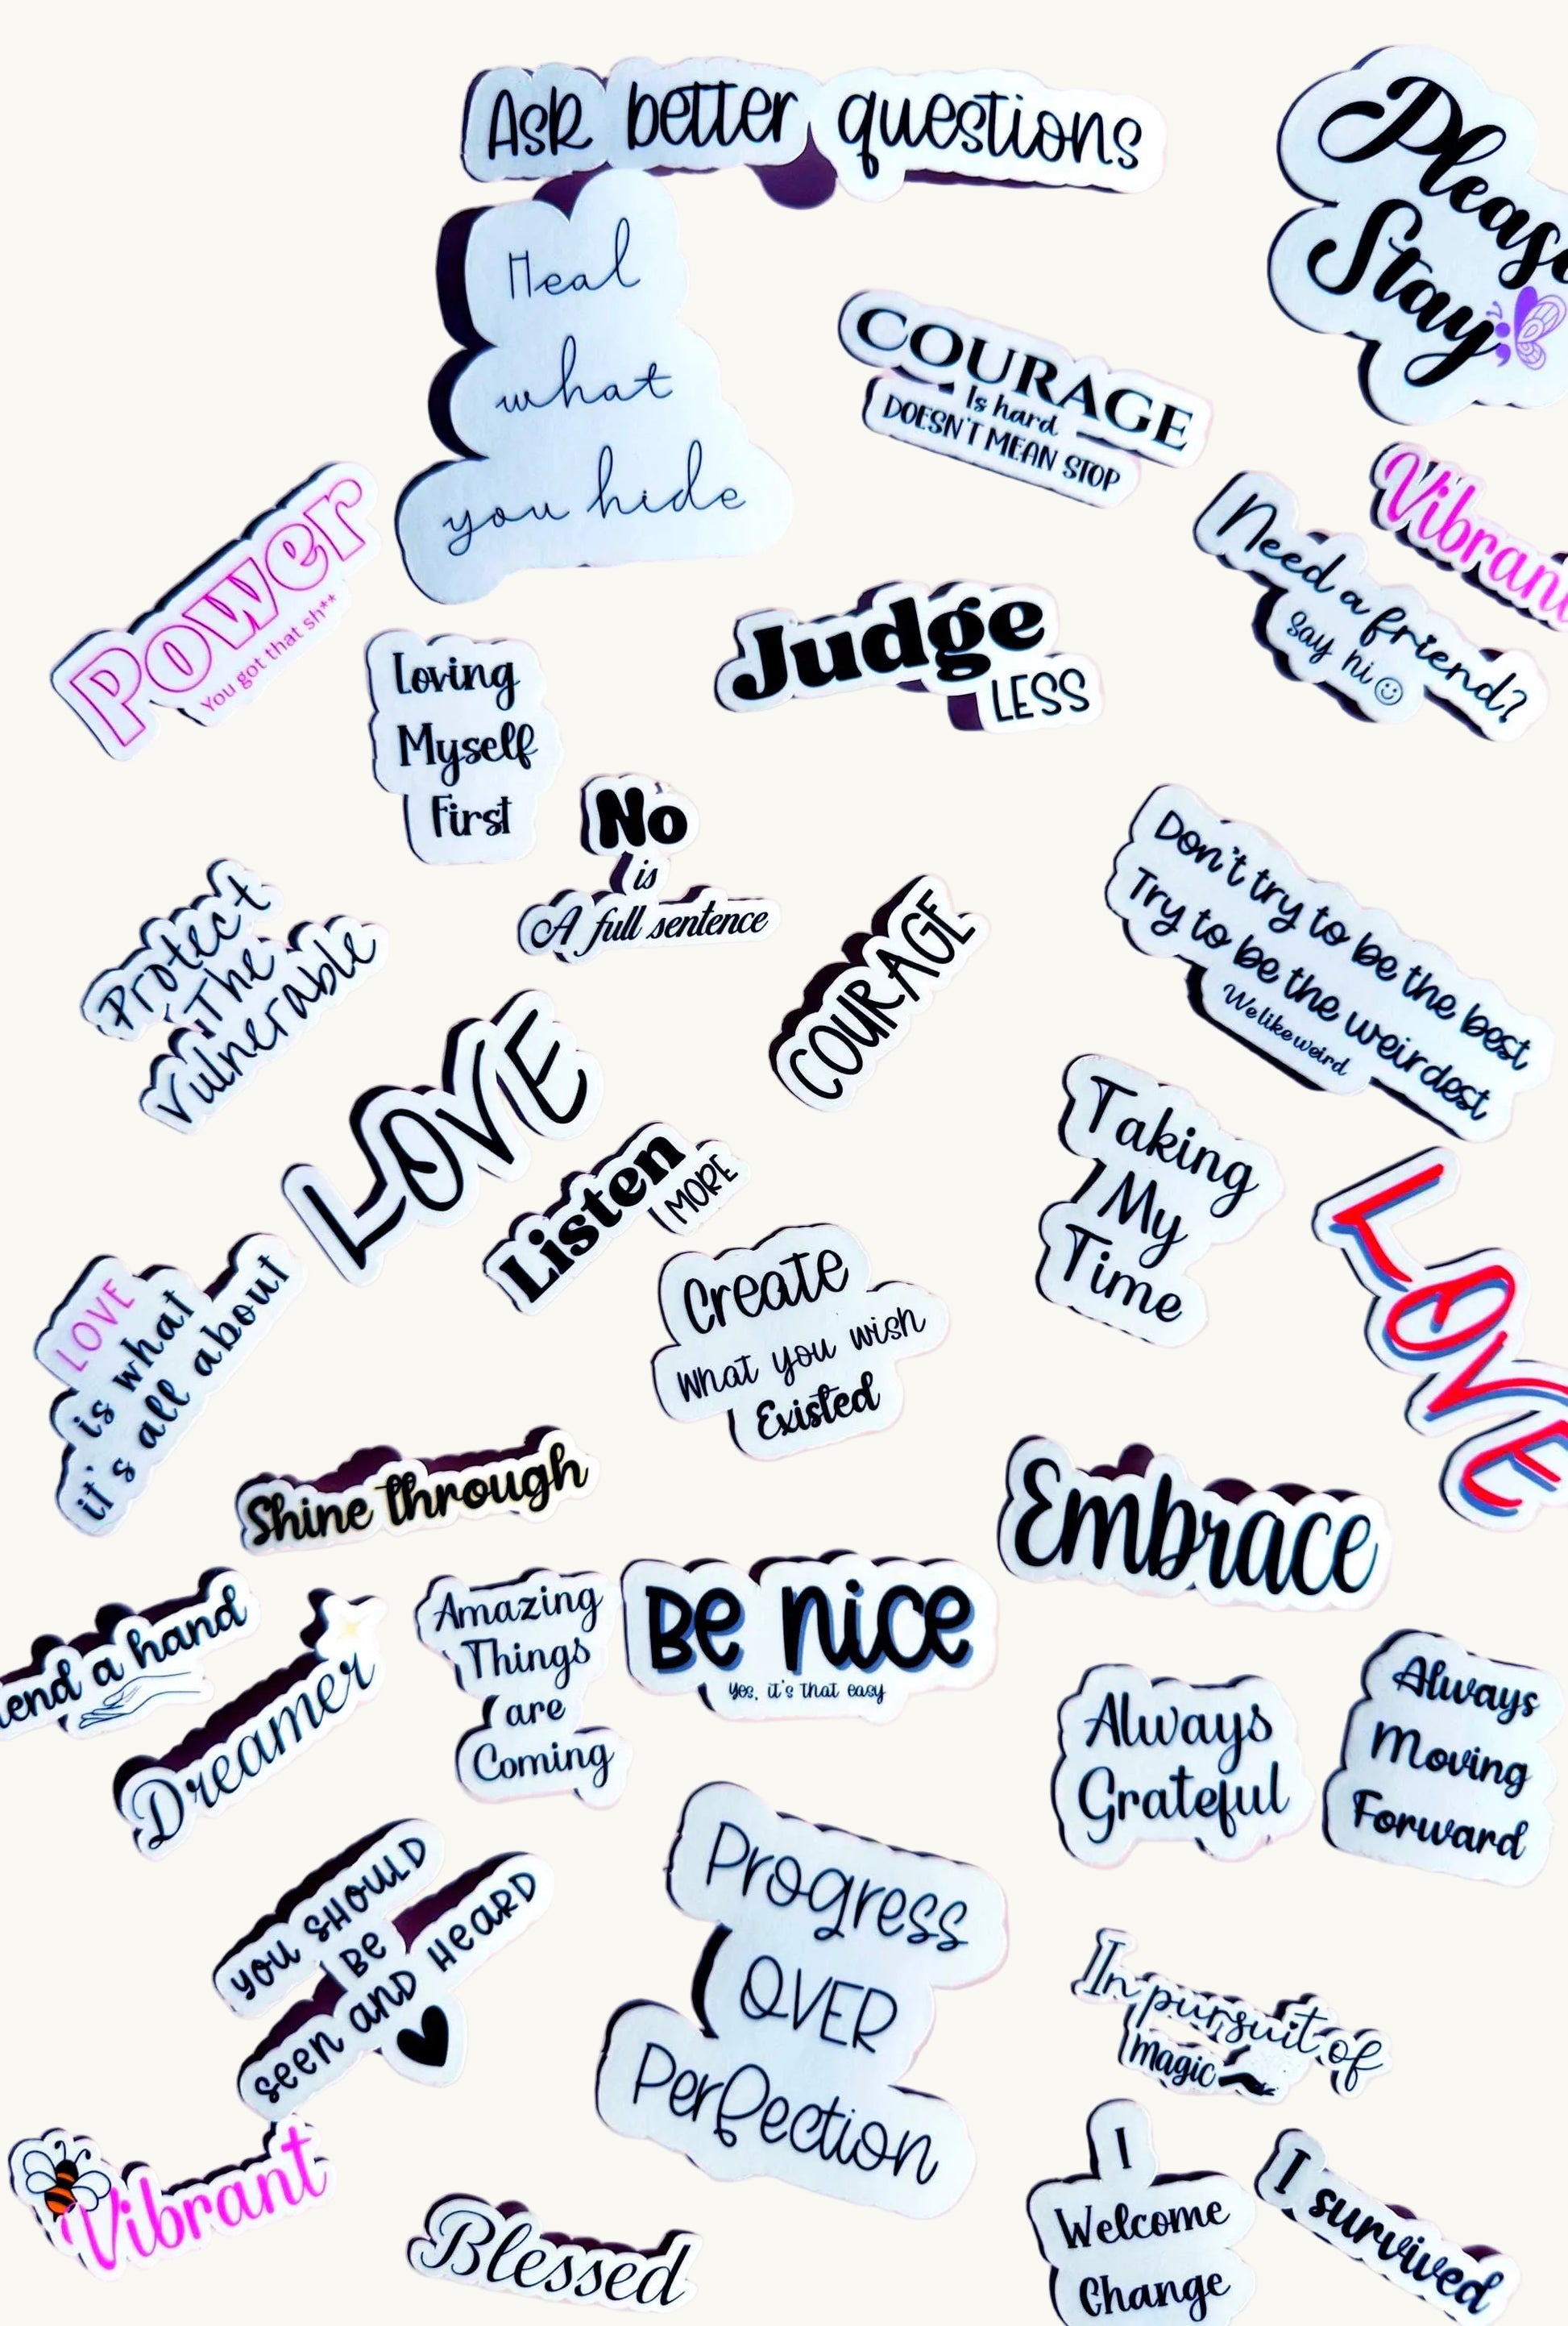 Ask better questions
Please
Stay
Heal
what
you hide
COURAGE
Is hard
DOESN'T MEAN STOP
Vibrant
Need a friend?
Say hi
Power
You got that sh**
Loving
Myself
First
Judge
LESS
No
is
A full sentence
Don't try to be the best
Try to be the weirdest
We like weird
Protect
The
Vulnerable
COURAGE
LOVE
Listen
MORE
Taking
My
Time
LOVE
LOVE
is what
it's all about
Create
What you wish
Existed
Shine through
Embrace
lend a hand
Dreamer
Amazing
Things
are
Coming
Be nice
Yes, it's that easy
Always
Grateful
Always
Moving
Forward
you SHOULD
BE
seen AND HEARD
Progress
OVER
Perfection
In pursuit of
magic
Vibrant
Blessed
I
Welcome
Change
I survived